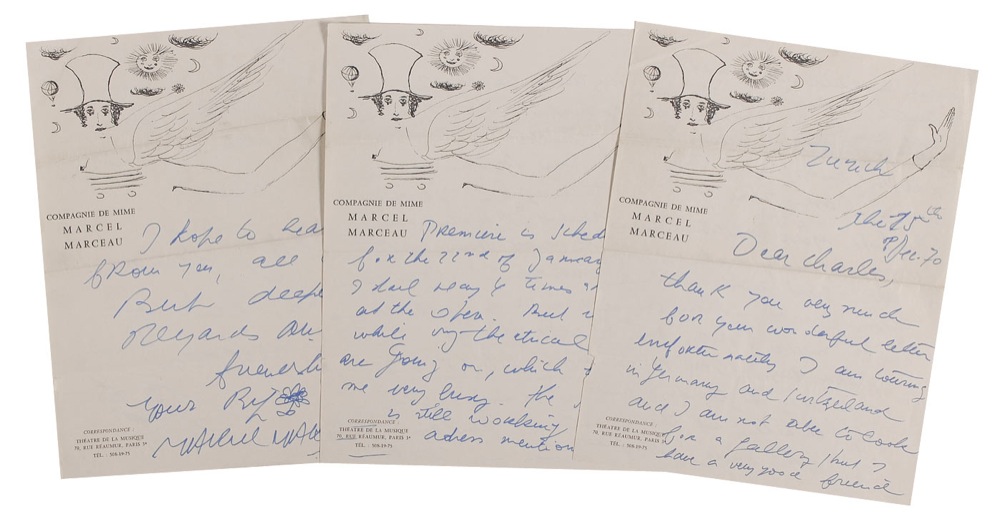 COMPAGNIE DE MIME
MARCEL
MARCEAU
I hope to hea
from you, all
But deepe
Regards an
friendsh
Your Bip
MARCEL MA
CORRESPONDANCE :
THÉATRE DE LA MUSIQUE
70, RUE RÉAUMUR, PARIS 3e
TÉL. : 508.19-75
COMPAGNIE DE MIME
MARCEL
MARCEAU
Premiere is sched
for the 22nd of January
I shall 6 times
at the open. But
while my theatrical
are going on, which
me very busy. the
is still working
adress mention
CORRESPONDANCE :
THÉATRE DE LA MUSIQUE
70, RUE RÉAUMUR, PARIS 3e
TÉL. : 508.19-75
COMPAGNIE DE MIME
MARCEL
MARCEAU
Zurich
the
Dec. 70
Dear Charles,
thank you very much
for your wonderful letter
I am touring
in Germany and
and I am not able to look
for a gallery but I
have a very good friend
CORRESPONDANCE :
THÉATRE DE LA MUSIQUE
70, RUE RÉAUMUR, PARIS 3e
TÉL. : 508.19-75